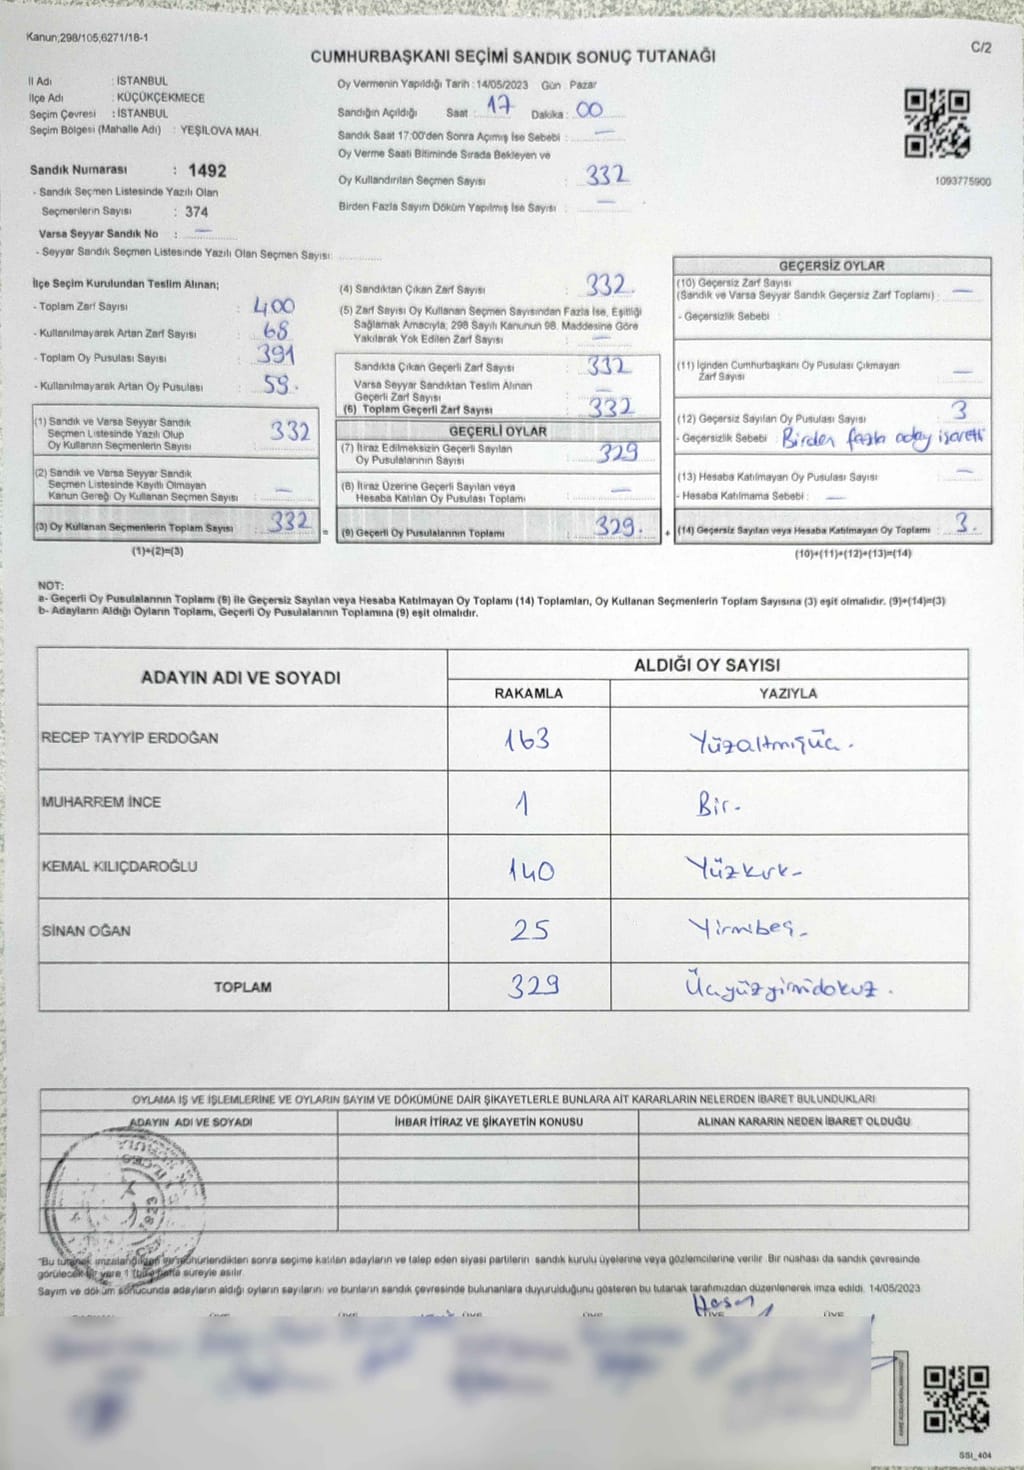 Kanun,298/105,6271/18-1
C/2
CUMHURBAŞKANI SEÇİMİ SANDIK SONUÇ TUTANAĞI
İl Adı : İSTANBUL
İlçe Adı : KÜÇÜKÇEKMECE
Seçim Çevresi : İSTANBUL
Seçim Bölgesi (Mahalle Adı) : YEŞİLOVA MAH.
Sandık Numarası : 1492
- Sandık Seçmen Listesinde Yazılı Olan
Seçmenlerin Sayısı : 374
Varsa Seyyar Sandık No : —
- Seyyar Sandık Seçmen Listesinde Yazılı Olan Seçmen Sayısı:
Oy Vermenin Yapıldığı Tarih : 14/05/2023 Gün : Pazar
Sandığın Açıldığı Saat : 17 Dakika : 00
Sandık Saat 17:00'den Sonra Açımış İse Sebebi : —
Oy Verme Saati Bitiminde Sırada Bekleyen ve
Oy Kullandırılan Seçmen Sayısı : 332
Birden Fazla Sayım Döküm Yapılmış İse Sayısı : —
1093775900
İlçe Seçim Kurulundan Teslim Alınan;
- Toplam Zarf Sayısı : 400
- Kullanılmayarak Artan Zarf Sayısı : 68
- Toplam Oy Pusulası Sayısı : 391
- Kullanılmayarak Artan Oy Pusulası : 59.
(1) Sandık ve Varsa Seyyar Sandık
Seçmen Listesinde Yazılı Olup
Oy Kullanan Seçmenlerin Sayısı : 332
(2) Sandık ve Varsa Seyyar Sandık
Seçmen Listesinde Kayıtlı Olmayan
Kanun Gereği Oy Kullanan Seçmen Sayısı : —
(3) Oy Kullanan Seçmenlerin Toplam Sayısı : 332
(1)+(2)=(3)
=
(4) Sandıktan Çıkan Zarf Sayısı : 332.
(5) Zarf Sayısı Oy Kullanan Seçmen Sayısından Fazla İse, Eşitliği
Sağlamak Amacıyla, 298 Sayılı Kanunun 98. Maddesine Göre
Yakılarak Yok Edilen Zarf Sayısı : —
Sandıkta Çıkan Geçerli Zarf Sayısı : 332
Varsa Seyyar Sandıktan Teslim Alınan
Geçerli Zarf Sayısı : —
(6) Toplam Geçerli Zarf Sayısı : 332
GEÇERLİ OYLAR
(7) İtiraz Edilmeksizin Geçerli Sayılan
Oy Pusulalarının Sayısı : 329
(8) İtiraz Üzerine Geçerli Sayılan veya
Hesaba Katılan Oy Pusulası Toplamı : —
(9) Geçerli Oy Pusulalarının Toplamı : 329.
+
GEÇERSİZ OYLAR
(10) Geçersiz Zarf Sayısı
(Sandık ve Varsa Seyyar Sandık Geçersiz Zarf Toplamı) : —
- Geçersizlik Sebebi :
(11) İçinden Cumhurbaşkanı Oy Pusulası Çıkmayan
Zarf Sayısı : —
(12) Geçersiz Sayılan Oy Pusulası Sayısı : 3
- Geçersizlik Sebebi : Birden fazla aday işareti
(13) Hesaba Katılmayan Oy Pusulası Sayısı : —
- Hesaba Katılmama Sebebi : —
(14) Geçersiz Sayılan veya Hesaba Katılmayan Oy Toplamı : 3.
(10)+(11)+(12)+(13)=(14)
NOT:
a- Geçerli Oy Pusulalarının Toplamı (9) ile Geçersiz Sayılan veya Hesaba Katılmayan Oy Toplamı (14) Toplamları, Oy Kullanan Seçmenlerin Toplam Sayısına (3) eşit olmalıdır. (9)+(14)=(3)
b- Adayların Aldığı Oyların Toplamı, Geçerli Oy Pusulalarının Toplamına (9) eşit olmalıdır.
ADAYIN ADI VE SOYADI
ALDIĞI OY SAYISI
RAKAMLA YAZIYLA
RECEP TAYYİP ERDOĞAN 163 Yüzaltmışüç.
MUHARREM İNCE 1 Bir.
KEMAL KILIÇDAROĞLU 140 Yüzkırk-
SİNAN OĞAN 25 Yirmibeş-
TOPLAM 329 Üçyüzyirmidokuz.
OYLAMA İŞ VE İŞLEMLERİNE VE OYLARIN SAYIM VE DÖKÜMÜNE DAİR ŞİKAYETLERLE BUNLARA AİT KARARLARIN NELERDEN İBARET BULUNDUKLARI
ADAYIN ADI VE SOYADI İHBAR İTİRAZ VE ŞİKAYETİN KONUSU ALINAN KARARIN NEDEN İBARET OLDUĞU
"Bu tutanak imzalandıktan ve mühürlendikten sonra seçime katılan adayların ve talep eden siyasi partilerin sandık kurulu üyelerine veya gözlemcilerine verilir. Bir nüshası da sandık çevresinde
görülecek bir yere 1 hafta süreyle asılır.
Sayım ve döküm sonucunda adayların aldığı oyların sayılarını ve bunların sandık çevresinde bulunanlara duyurulduğunu gösteren bu tutanak tarafımızdan düzenlenerek imza edildi. 14/05/2023
Hasan
ÜYE ÜYE ÜYE ÜYE ÜYE
SSİ_404